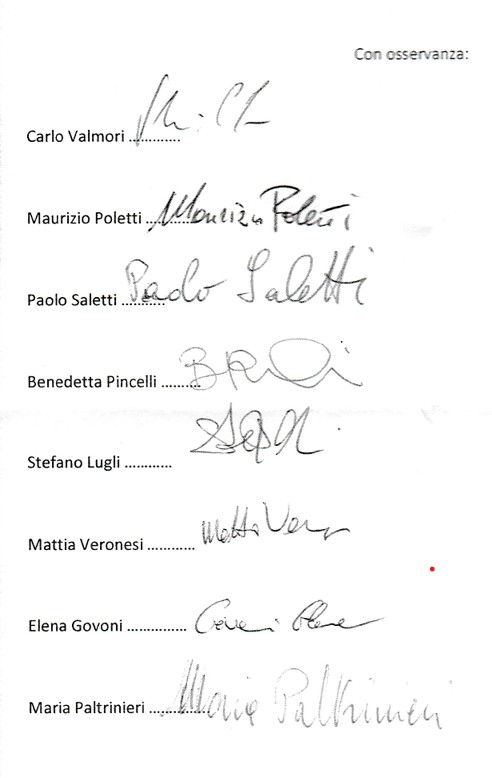 Con osservanza:
Carlo Valmori ............
Maurizio Poletti ........... Maurizio Poletti
Paolo Saletti ........... Paolo Saletti
Benedetta Pincelli ..........
Stefano Lugli ............
Mattia Veronesi ............ Mattia
Elena Govoni ............... Govoni Elena
Maria Paltrinieri ............... Maria Paltrinieri